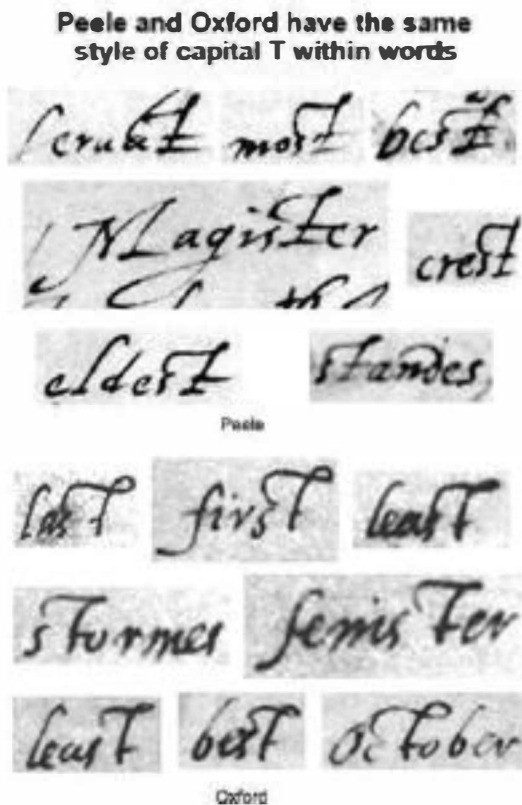 Peele and Oxford have the same
style of capital T within words
most best
Magister crest
eldest standes
Peele
last first least
stormes senister
least best October
Oxford